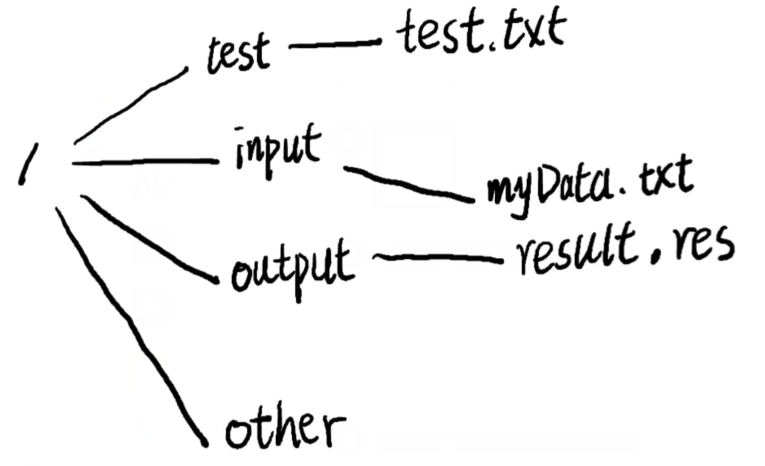 /
test test.txt
input myData.txt
output result.res
other